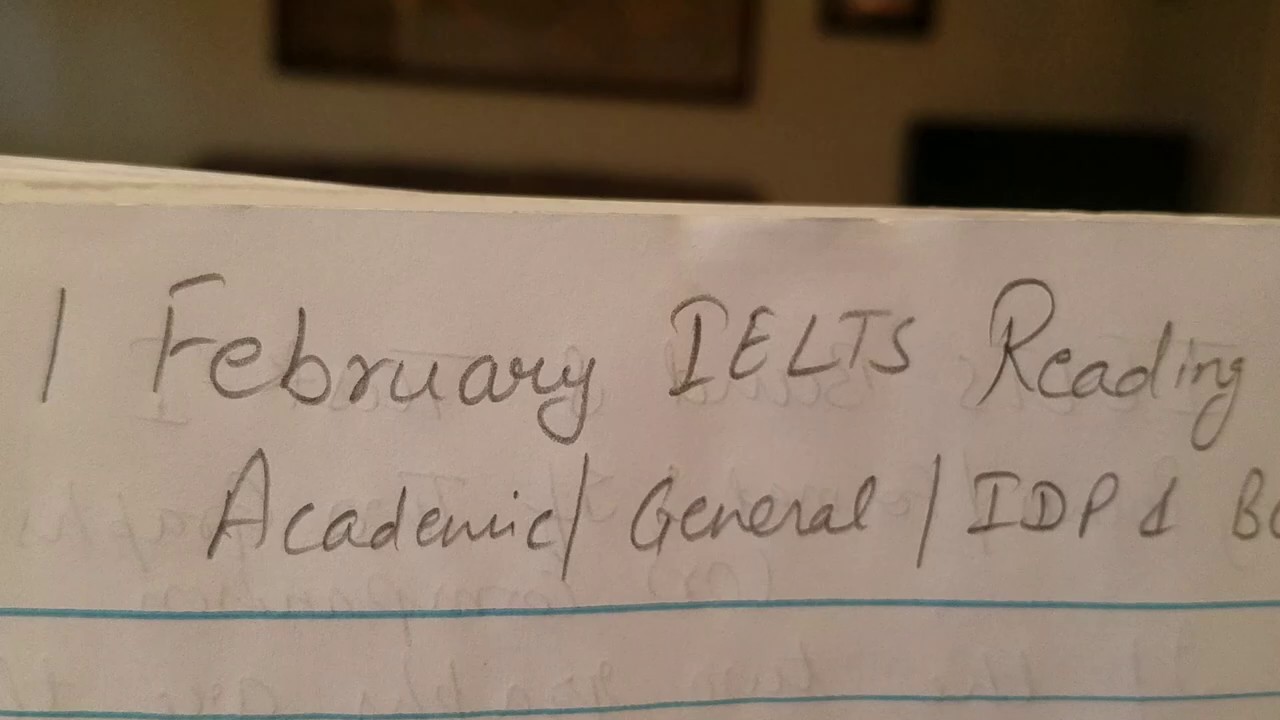 1 February IELTS Reading
Academic/ General / IDP &